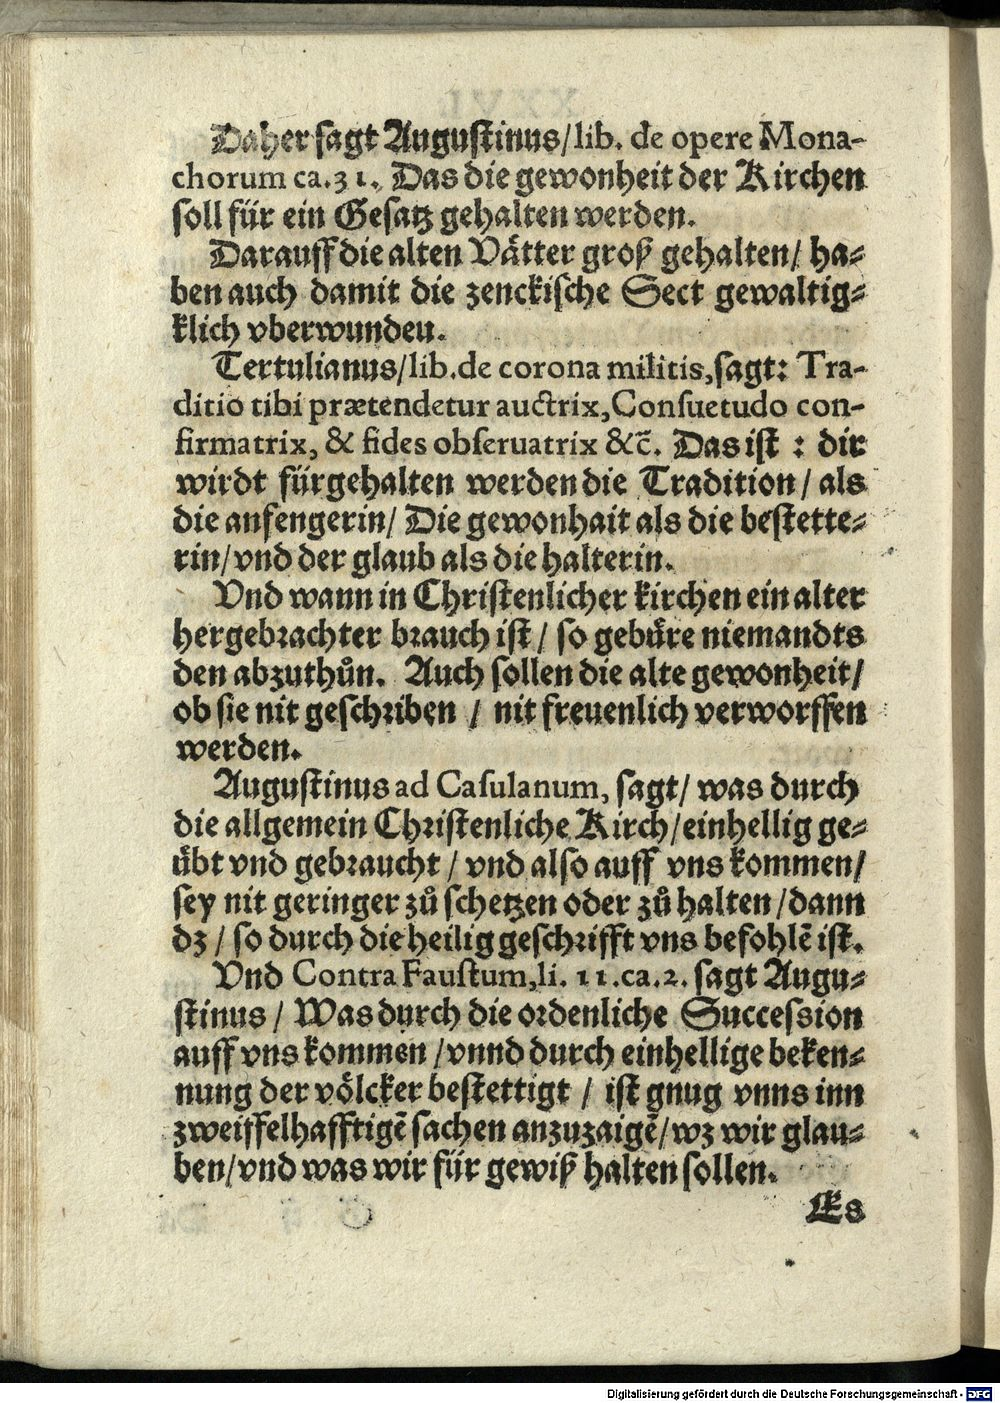 Daher sagt Augustinus/lib. de opere Mona-
chorum ca.31., Das die gewonheit der Kirchen
soll für ein Gesatz gehalten werden.
Darauff die alten Vaͤtter groß gehalten/ ha-
ben auch damit die zenckische Sect gewaltig-
klich vberwunden.
Tertulianus/lib.de corona militis,sagt: Tra-
ditio tibi prætendetur auctrix,Consuetudo con-
firmatrix, & fides obseruatrix &c̄. Das ist : dir
wirdt fürgehalten werden die Tradition/ als
die anfengerin/ Die gewonhait als die bestette-
rin/vnd der glaub als die halterin.
Vnd wann in Christenlicher kirchen ein alter
hergebrachter brauch ist/ so gebüre niemandts
den abzuthůn. Auch sollen die alte gewonheit/
ob sie nit geschriben / nit freuenlich verworffen
werden.
Augustinus ad Casulanum, sagt/ was durch
die allgemein Christenliche Kirch/einhellig ge-
übt vnd gebraucht / vnd also auff vns kommen/
sey nit geringer zů schetzen oder zů halten/dann
dz / so durch die heilig geschrifft vns befohlē ist.
Vnd Contra Faustum,li. 11.ca.2. sagt Augu-
stinus / Was durch die ordenliche Succession
auff vns kommen /vnnd durch einhellige beken-
nung der voͤlcker bestettigt / ist gnug vnns inn
zweiffelhafftigē sachen anzuzaigē/wz wir glau-
ben/vnd was wir für gewiß halten sollen.
Es
Digitalisierung gefördert durch die Deutsche Forschungsgemeinschaft - DFG